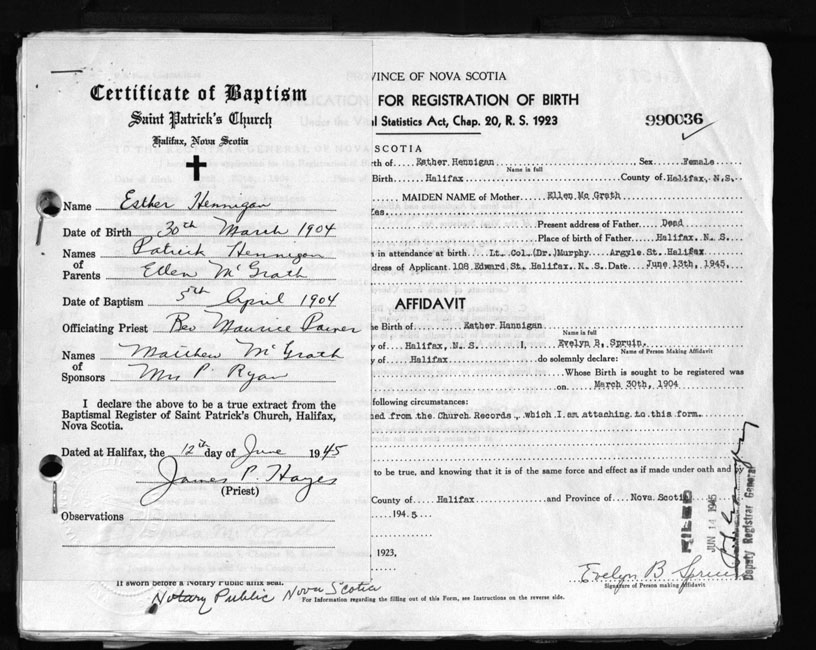 Certificate of Baptism
Saint Patrick's Church
Halifax, Nova Scotia
Name Esther Hennigan
Date of Birth 30th March 1904
Names of Parents Patrick Hennigan
Ellen McGrath
Date of Baptism 5th April 1904
Officiating Priest Rev Maurice
Names of Sponsors Matthew McGrath
Mrs P. Ryan
I declare the above to be a true extract from the
Baptismal Register of Saint Patrick's Church, Halifax,
Nova Scotia.
Dated at Halifax, the 12th day of June 1945
James P. Hayes
(Priest)
Observations
VINCE OF NOVA SCOTIA
FOR REGISTRATION OF BIRTH
al Statistics Act, Chap. 20, R. S. 1923
990036
SCOTIA
rth of Eather Hennigan Sex Female
Name in full
Birth Halifax County of Halifax, N.S.
MAIDEN NAME of Mother Ellen Mc Grath
Present address of Father Dead
Place of birth of Father Halifax, N. S.
n in attendance at birth Lt. Col.(Dr.)Murphy Argyle St. Halifax
dress of Applicant 106 Edward St. Halifax. N. S. Date June 13th, 1945.
AFFIDAVIT
he Birth of Eather Hannigan
Name in full
of Halifax, N. S. I, Evelyn B. Spruin.
Name of Person Making Affidavit
y of Halifax do solemnly declare:
Whose Birth is sought to be registered was
on March 30th, 1904
following circumstances:
ned from the Church Records, which I am attaching to this form.
to be true, and knowing that it is of the same force and effect as if made under oath and by
County of Halifax and Province of Nova Scotia
194 5
1923,
Evelyn B Spruin
Signature of Person making Affidavit
FILED
JUN 14 1945
Deputy Registrar General
If sworn before a Notary Public affix seal.
Notary Public Nova Scotia
For Information regarding the filling out of this Form, see Instructions on the reverse side.